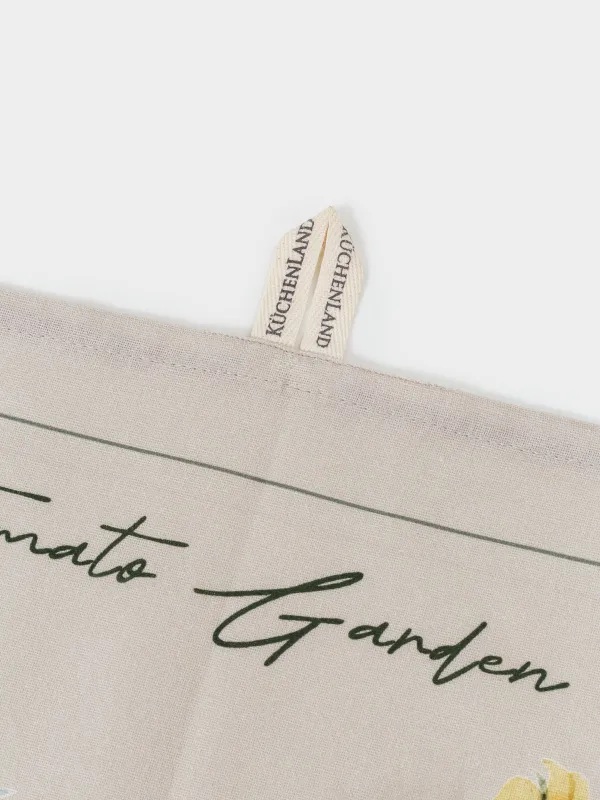 KÜCHENLAND
KÜCHENLAND
mato Garden